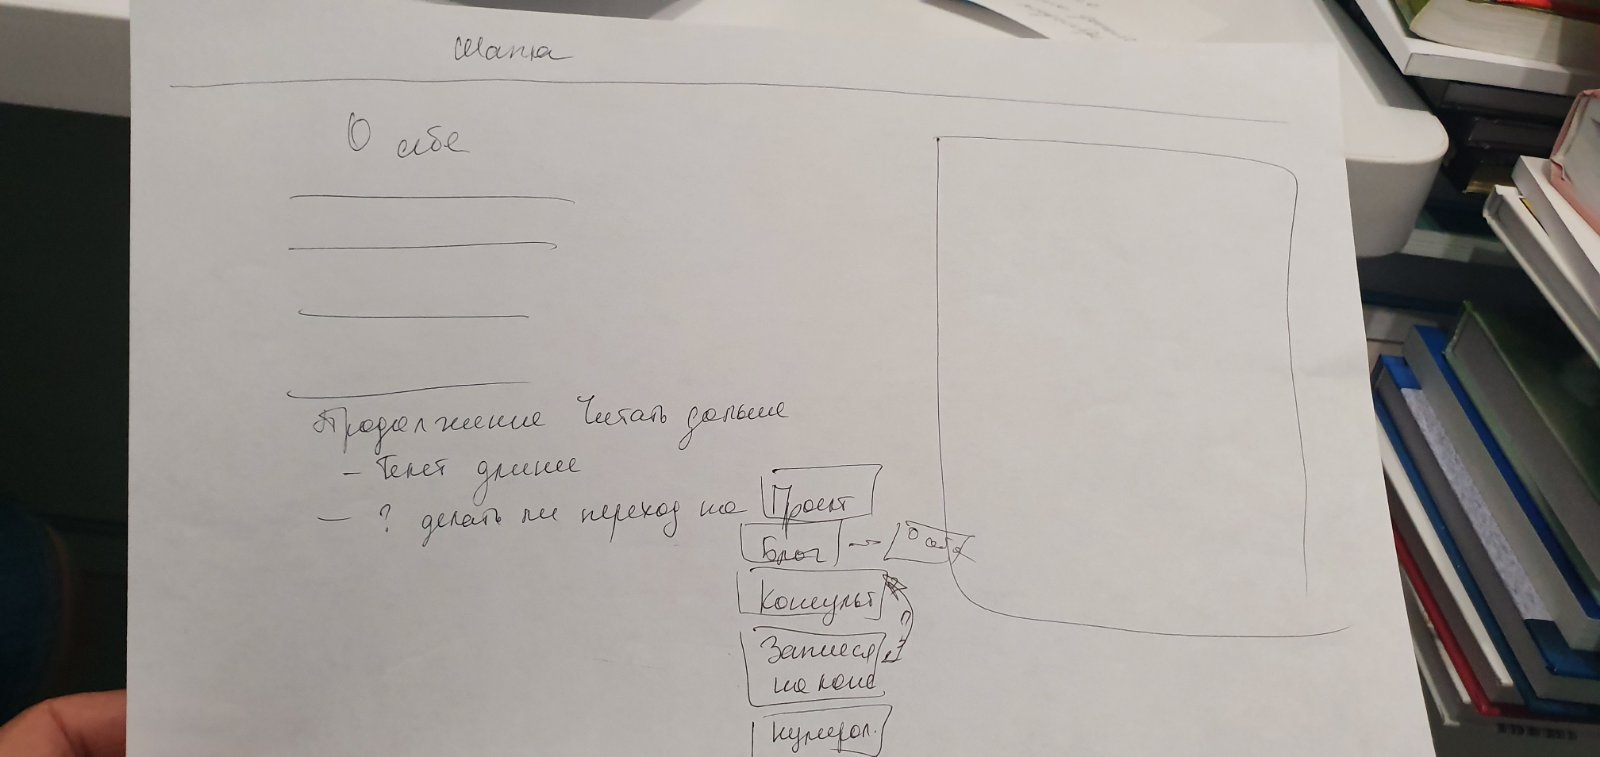 Шапка
О себе
Продолжение Читать дальше
- Текст длинее
- ? делать ли переход на Проект
Блог → О себе
Консульт
?
Записся
на конс
Нумерол.